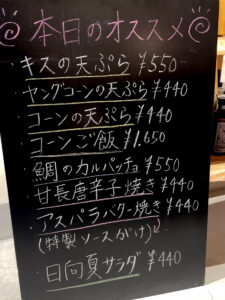 本日のオススメ
・キスの天ぷら ¥550
・ヤングコーンの天ぷら ¥440
・コーンの天ぷら ¥440
・コーンご飯 ¥1.650
・鯛のカルパッチョ ¥550
・甘長唐辛子焼き ¥440
・アスパラバター焼き ¥440
(特製ソースがけ)
・日向夏サラダ ¥440